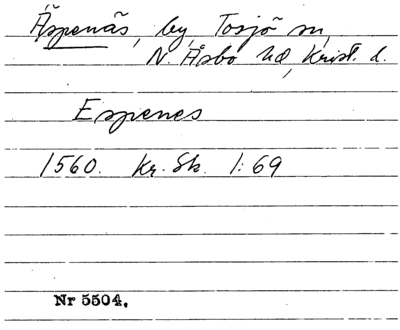 Äspenäs, by, Tosjö sn,
N. Åsbo hd, Krist. l.
Espenes
1560. Kr. Sk. 1:69
Nr 5504.